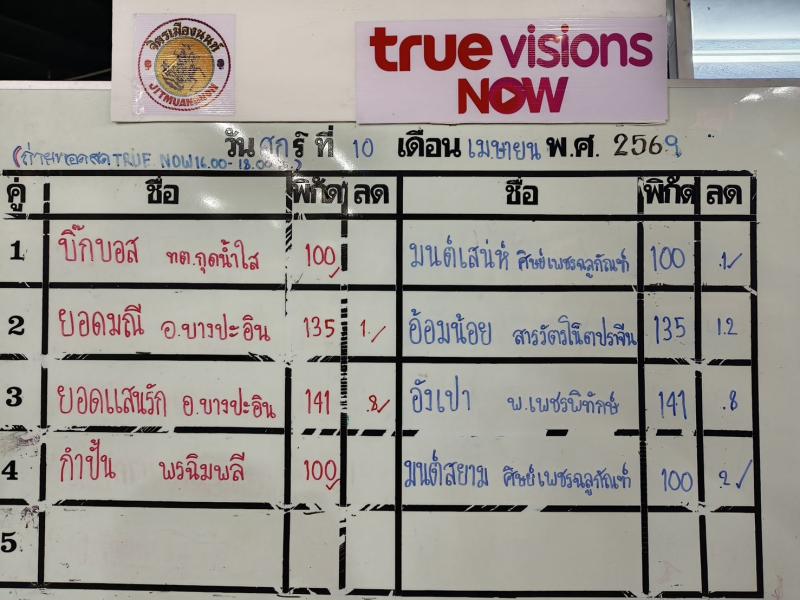 จิตรเมืองนนท์
JITMUANGNON
true visions
NOW
วัน ศุกร์ ที่ 10 เดือน เมษายน พ.ศ. 2569
(ถ่ายทอดสด TRUE NOW 16.00-18.00 น.)
คู่ ชื่อ พิกัด ลด ชื่อ พิกัด ลด
1 บิ๊กบอส ทต.กุดน้ำใส 100 มนต์เสน่ห์ ศิษย์เพชรฉลูกัณฑ์ 100 .1
2 ยอดมณี อ.บางปะอิน 135 1. อ้อมน้อย สารวัตรโน็ตปราจีน 135 1.2
3 ยอดแสนรัก อ.บางปะอิน 141 .8 อังเปา พ.เพชรพิทักษ์ 141 .8
4 กำปั้น พรฉิมพลี 100 มนต์สยาม ศิษย์เพชรฉลูกัณฑ์ 100 .2
5